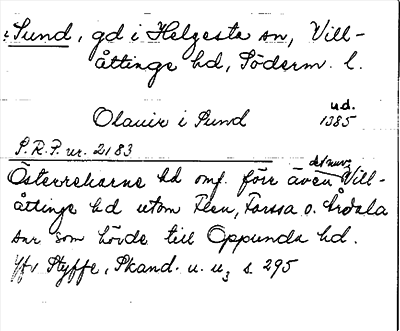 : Sund, gd i Helgesta sn, Vill-
åttinge hd, Söderm. l.
Olauir i Sund u.d. 1385
S.R.P. nr. 2183
Österrekarne hd omf. förr även det nuv. Vill-
åttinge hd utom Flen, Forssa o. Årdala
snr som hörde till Oppunda hd.
Jfr Styffe, Skand. u. u₃ s. 295